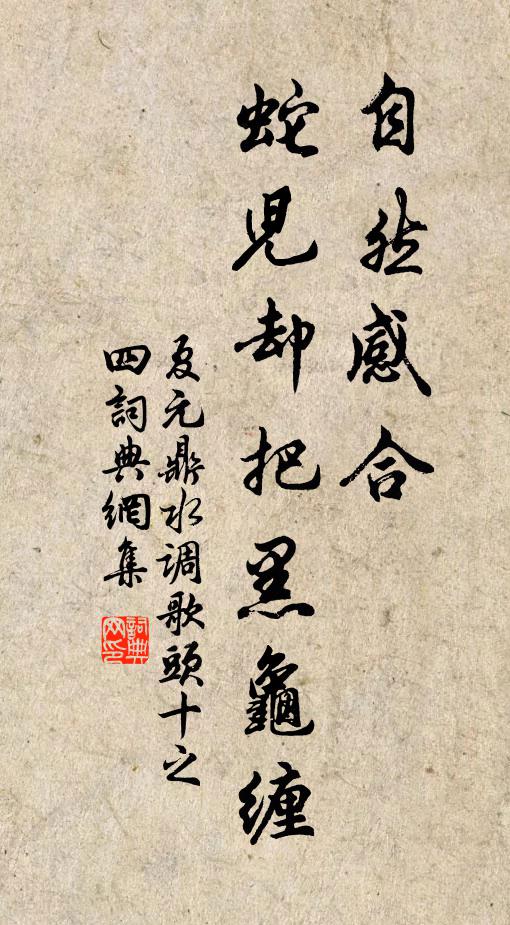 自然感合
蛇児却把黑龜纏
夏元鼎水調歌頭十之
四詞典網集
詞典
网印